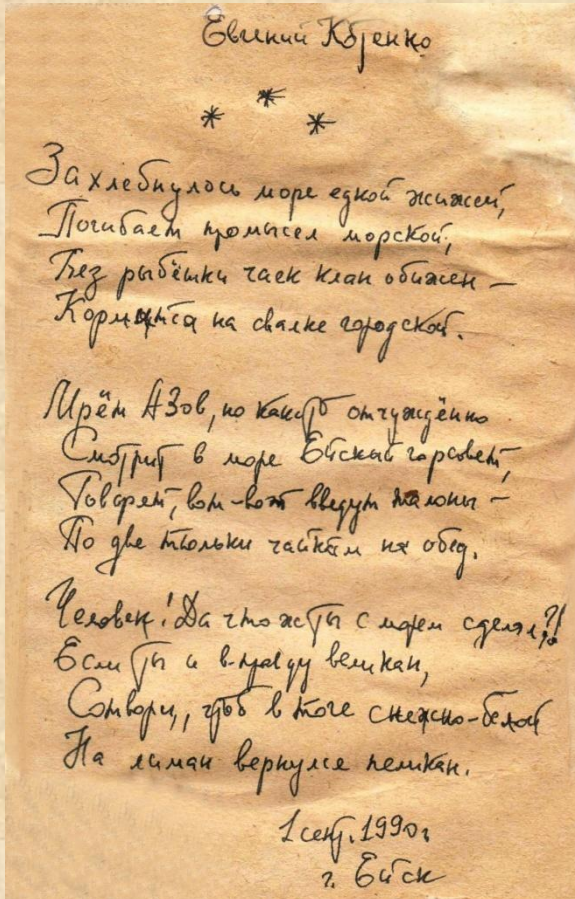 Евгений Котенко
* * *
Захлебнулось море едкой жижей,
Погибает промысел морской,
Без рыбёшки чаек клан обижен –
Кормится на свалке городской.
Мрёт Азов, но как-то отчуждённо
Смотрит в море Ейский горсовет,
Говорят, вот-вот введут талоны –
По две тюльки чайкам на обед.
Человек! Да что ж ты с морем сделал?!
Если ты и вправду великан,
Сотвори, чтоб в тоге снежно-белой
На лиман вернулся пеликан.
1 сент. 1990 г
г. Ейск